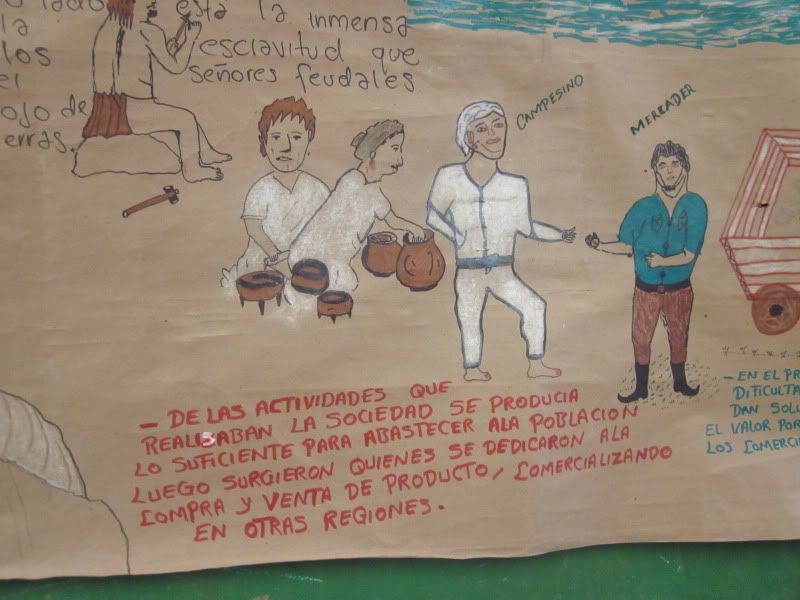 lado está la inmensa
la esclavitud que
los señores feudales
el
ojo de
erras.
CAMPESINO
MERCADER
- DE LAS ACTIVIDADES QUE
REALISABAN LA SOCIEDAD SE PRODUCIA
LO SUFICIENTE PARA ABASTECER ALA POBLACION
LUEGO SURGIERON QUIENES SE DEDICARON ALA
COMPRA Y VENTA DE PRODUCTO, COMERCIALIZANDO
EN OTRAS REGIONES.
- EN EL PR
DIFICULTA
DAN SOLU
EL VALOR POR
LOS COMERCI